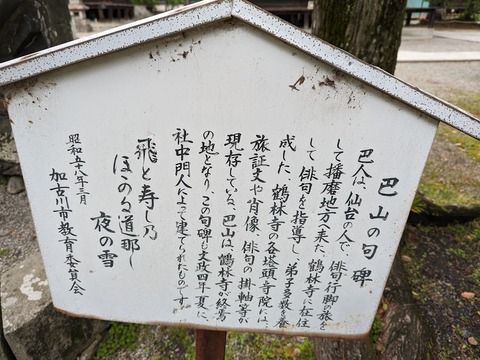 巴山の句碑
巴人は、仙台の人で、俳句行脚の旅を
して播磨地方へ来た。鶴林寺に在住
して俳句を指導し、弟子多数を養
成した。鶴林寺の各塔頭寺院には、
旅証文や肖像、俳句の掛軸等が
現存している。巴山は、鶴林寺が終焉
の地となり、この句碑も文政四年夏に、
社中門人によって建てられたものです。
飛と寿し乃
ほのる道那し
夜の雪
昭和五十八年三月
加古川市教育委員会